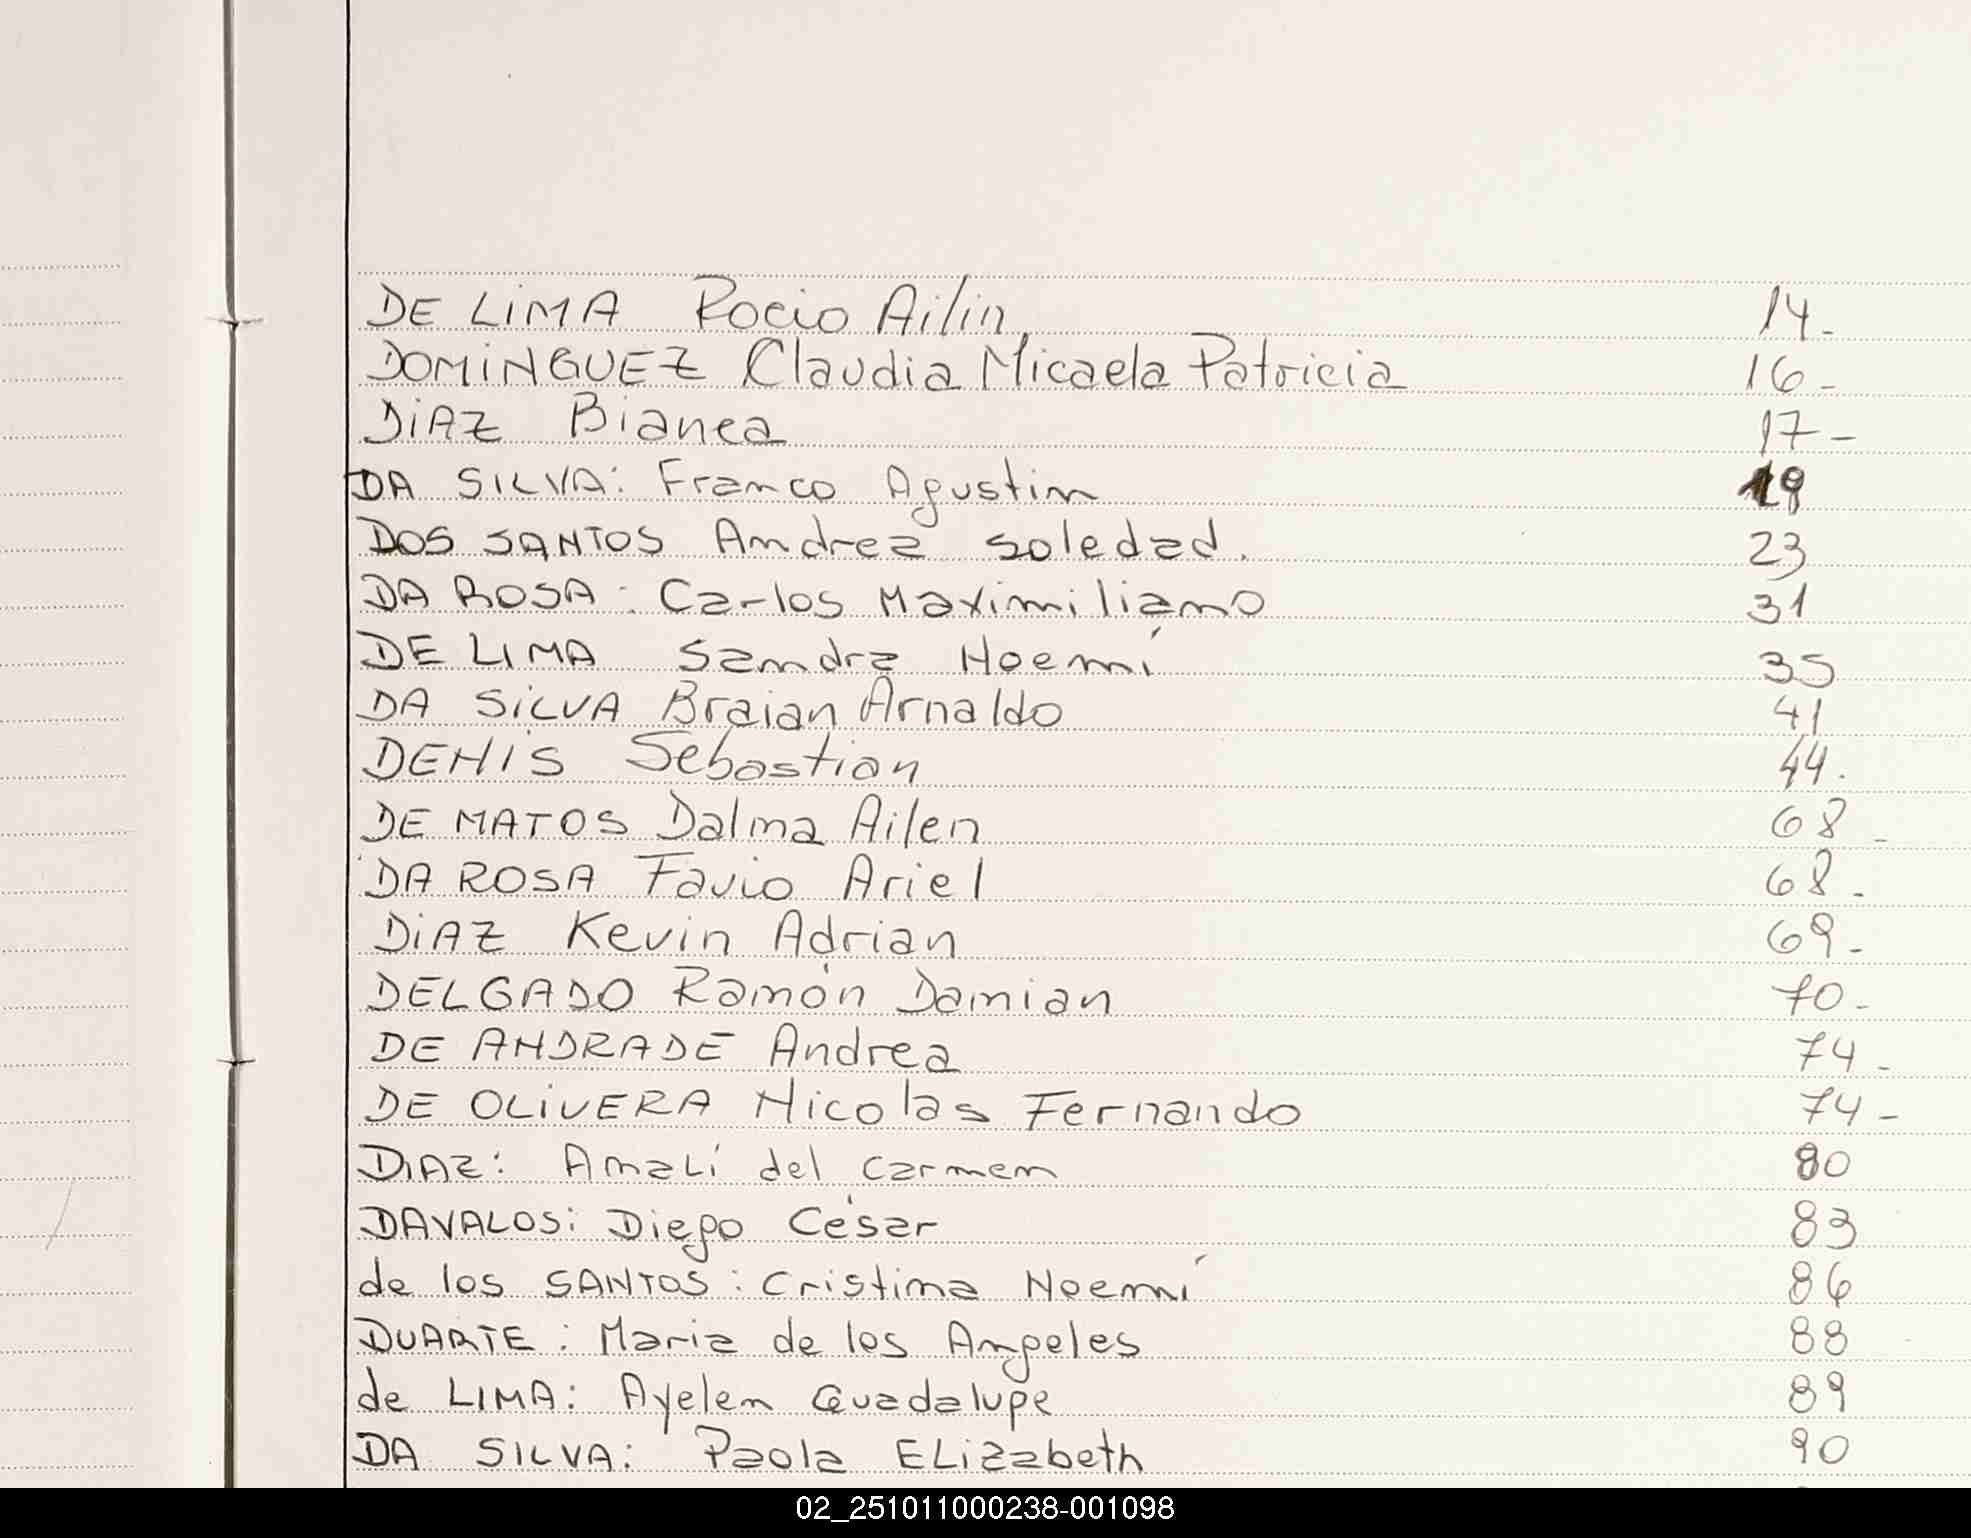 DE LiMA Rocio Ailin 14-
DOMiNGUEZ Claudia Micaela Patricia 16-
DiAZ Bianca 17-
DA SILVA: Franco Agustin 19
DOS SANTOS Andrea Soledad. 23
DA ROSA: Carlos Maximiliano 31
DE LIMA Sandra Noemí 35
DA SiLVA Braian Arnaldo 41
DENIS Sebastian 44.
DE MATOS Dalma Ailen 68-
DA ROSA Favio Ariel 68-
DiAZ Kevin Adrian 69-
DELGADO Ramón Damian 70-
DE ANDRADE Andrea 74-
DE OLiVERA Nicolas Fernando 74-
DIAZ: Amalí del Carmen 80
DAVALOS: Diego César 83
de los SANTOS: Cristina Noemí 86
DUARTE: Maria de los Angeles 88
de LIMA: Ayelen Guadalupe 89
DA SILVA: Paola ELizabeth 90
02_251011000238-001098